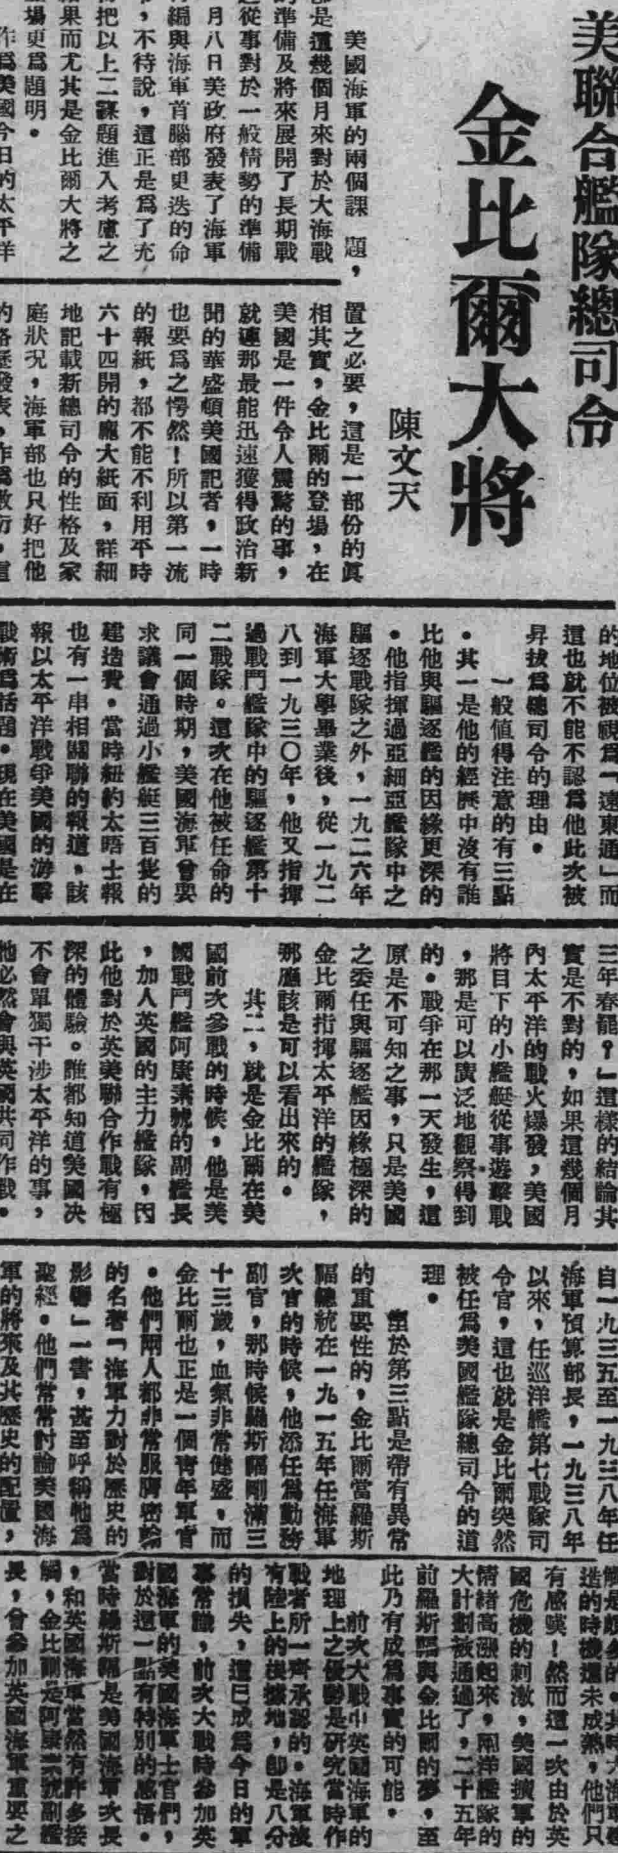 美聯合艦隊總司令
金比爾大將
陳文天
美國海軍的兩個課 題，
是這幾個月來對於大海戰
的準備及將來展開了長期戰
從事對於一般情勢的準備
月八日美政府發表了海軍
編與海軍首腦部更迭的命
，不待說，這正是為了充
把以上二課題進入考慮之
果而尤其是金比爾大將之
場更為題明。
作為美國今日的太平洋
置之必要，這是一部份的眞
相其實，金比爾的登場，在
美國是一件令人震驚的事，
就連那最能迅速獲得政治新
聞的華盛頓美國記者，一時
也要為之愕然！所以第一流
的報紙，都不能不利用平時
六十四開的龐大紙面，詳細
地記載新總司令的性格及家
庭狀況，海軍部也只好把他
的略歷發表，作為敷衍，這
的地位被視為「遠東通」而
這也就不能不認為他此次被
昇拔為總司令的理由。
一般值得注意的有三點
。其一是他的經歷中沒有誰
比他與驅逐艦的因緣更深的
。他指揮過亞細亞艦隊中之
驅逐戰隊之外，一九二六年
海軍大學畢業後，從一九二
八到一九三〇年，他又指揮
過戰鬥艦隊中的驅逐艦第十
二戰隊。這次在他被任命的
同一個時期，美國海軍曾要
求議會通過小艦艇三百隻的
建造費。當時紐約太晤士報
也有一串相關聯的報道，該
報以太平洋戰爭美國的游擊
戰術為話題。現在美國是在
三年春罷？」這樣的結論其
實是不對的，如果這幾個月
內太平洋的戰火爆發，美國
將目下的小艦艇從事遊擊戰
，那是可以廣泛地觀察得到
的。戰爭在那一天發生，這
原是不可知之事，只是美國
之委任與驅逐艦因緣極深的
金比爾指揮太平洋的艦隊，
那應該是可以看出來的。
其二，就是金比爾在美
國前次參戰的時候，他是美
國戰鬥艦阿康素號的副艦長
，加入英國的主力艦隊，因
此他對於英美聯合作戰有極
深的體驗。誰都知道美國決
不會單獨干涉太平洋的事，
他必然會與英國共同作戰。
自一九三五至一九三八年任
海軍預算部長，一九三八年
以來，任巡洋艦第七戰隊司
令官，這也就是金比爾突然
被任為美國艦隊總司令的道
理。
至於第三點是帶有異常
的重要性的，金比爾當羅斯
福總統在一九一五年任海軍
次官的時候，他添任為勤務
副官，那時候羅斯福剛滿三
十三歲，血氣非常健盛，而
金比爾也正是一個青年軍官
。他們兩人都非常服膺密輪
的名著「海軍力對於歷史的
影響」一書，甚至呼稱牠為
聖經。他們常常討論美國海
軍的將來及其歷史的配置，
造的時機還未成熟，他們只
有感嘆！然而這一次由於英
國危機的刺激，美國擴軍的
情緒高漲起來，兩洋艦隊的
大計劃被通過了，二十五年
前羅斯福與金比爾的夢，至
此乃有成為事實的可能。
前次大戰中英國海軍的
地理上之優勝是研究當時作
戰者所一齊承認的。海軍沒
有陸上的根據地，卽是八分
的損失，這已成為今日的軍
事常識，前次大戰時參加英
國海軍的美國海軍士官們，
對於這一點有特別的感悟。
當時羅斯福是美國海軍次長
，和英國海軍當然有許多接
觸，金比爾是阿康素號副艦
長，曾參加英國海軍重要之